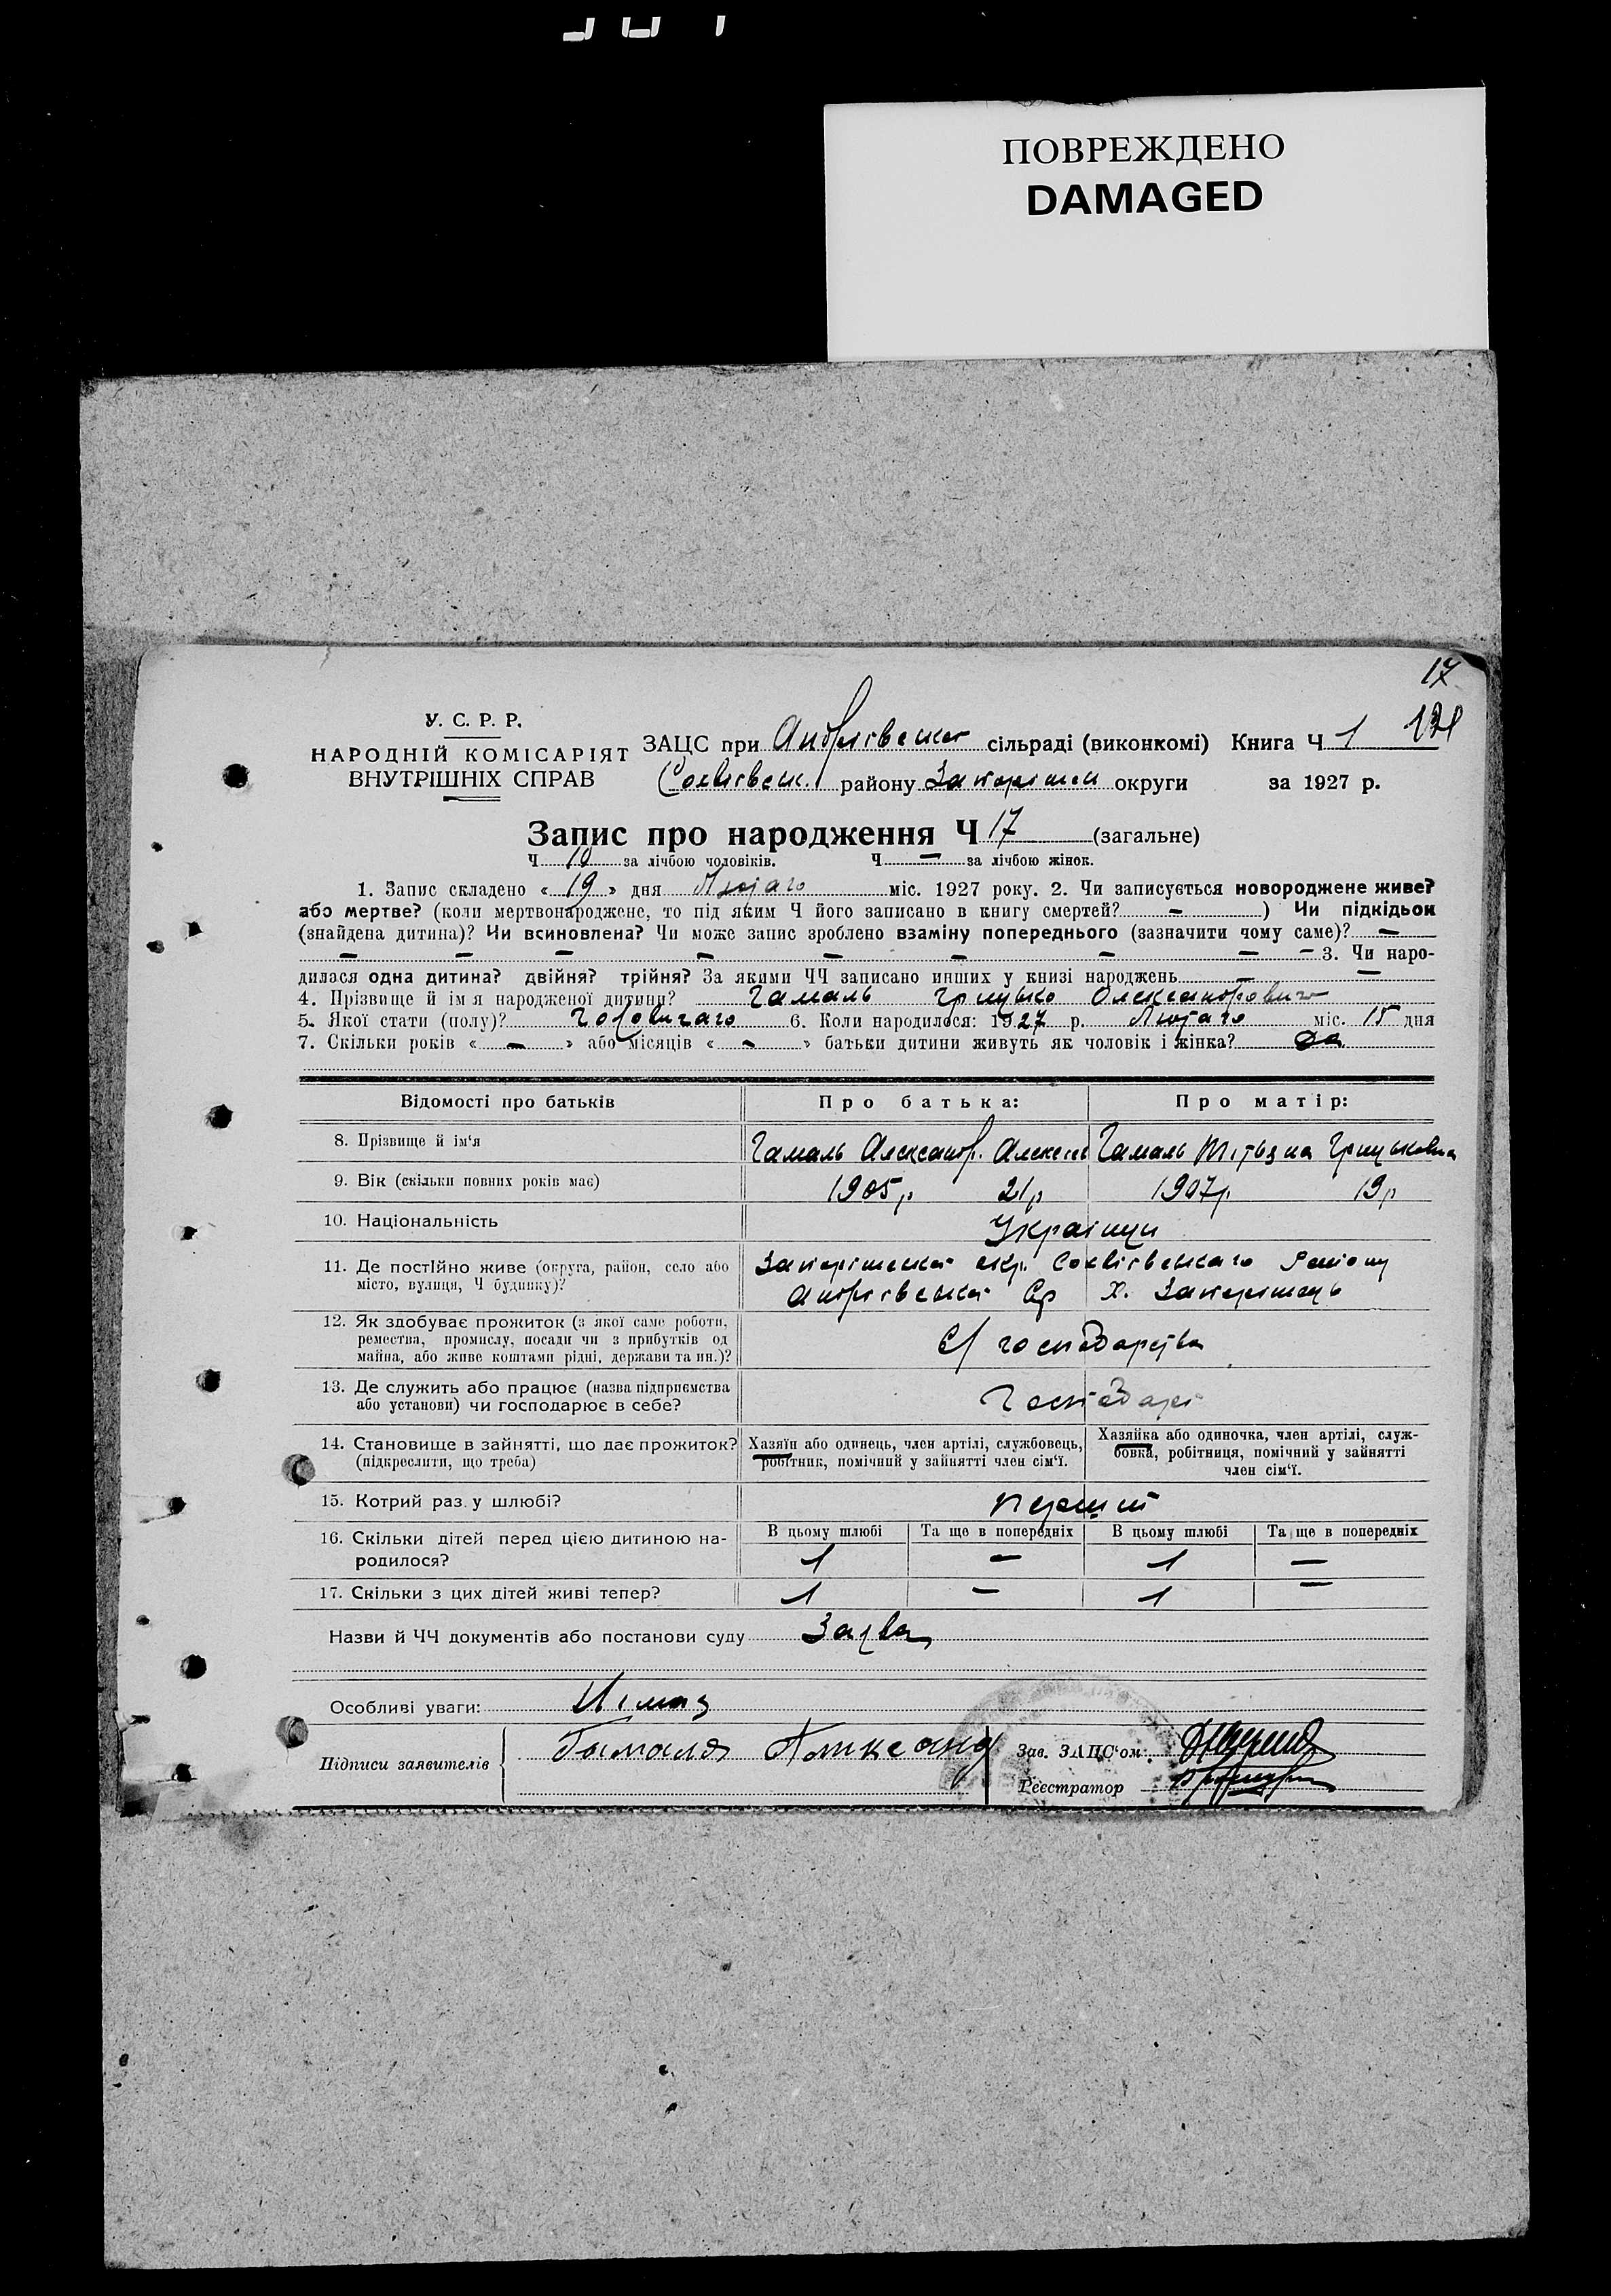 ПОВРЕЖДЕНО
DAMAGED
17
У. С. Р. Р.
НАРОДНІЙ КОМІСАРІЯТ
ВНУТРІШНІХ СПРАВ
ЗАЦС при сільраді (виконкомі) Книга Ч 1
району округи за 1927 р.
Запис про народження Ч 17 (загальне)
Ч 10 за лічбою чоловіків. Ч — за лічбою жінок.
1. Запис складено « 19 » дня Лютаго міс. 1927 року. 2. Чи записується новороджене живе?
або мертве? (коли мертвонароджене, то під яким Ч його записано в книгу смертей? — ) Чи підкідьок
(знайдена дитина)? Чи всиновлена? Чи може запис зроблено взаміну попереднього (зазначити чому саме)? —
— — — — — — — — — 3. Чи наро-
дилася одна дитина? двійня? трійня? За якими ЧЧ записано инших у книзі народжень —
4. Прізвище й ім я народженої дитини? Гамаль Грицько Олександрович
5. Якої стати (полу)? 6. Коли народилося: 1927 р. Лютаго міс. 15 дня
7. Скільки років « — » або місяців « - » батьки дитини живуть як чоловік і жінка? Да
Відомості про батьків Про батька: Про матір:
8. Прізвище й ім‘я Гамаль Александр. Гамаль
9. Вік (скільки повних років має) 1905р 21р 1907р. 19р
10. Національність Українци
11. Де постІйно живе (округа, район, село або
місто, вулиця, Ч будинку)? Х. Запорожець
12. Як здобуває прожиток (з якої саме роботи,
ремества, промислу, посади чи з прибутків од
майна, або живе коштами рідні, держави та ин.)? С/ господарства
13. Де служить або працює (назва підприємства
або установи) чи господарює в себе?
14. Становище в зайнятті, що дає прожиток?
(підкреслити, що треба)
Хазяїн або одинець, член артілі, службовець,
робітник, помічний у зайнятті член сім‘ї.
Хазяйка або одиночка, член артілі, служ-
бовка, робітниця, помічний у зайнятті
член сім‘ї.
15. Котрий раз у шлюбі? перший
16. Скільки дітей перед цією дитиною на-
родилося?
В цьому шлюбі Та ще в попередніх В цьому шлюбі Та ще в попередніх
1 — 1 —
17. Скільки з цих дітей живі тепер? 1 — 1 —
Назви й ЧЧ документів або постанови суду Заява
Особливі уваги: Німаэ
Підписи заявителів Гамаля
Зав. ЗАЦС‘ом:
Реєстратор